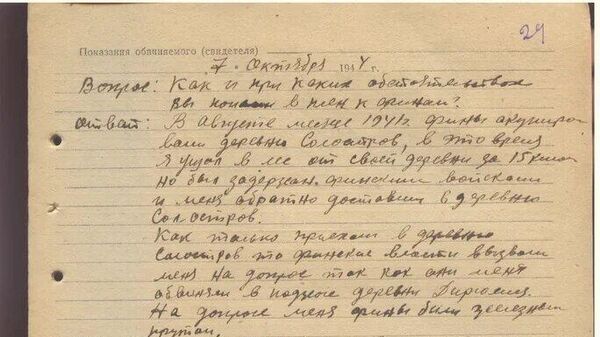 29
Показания обвиняемого (свидетеля)
7 октября 1944 г.
Вопрос: Как и при каких обстоятельствах
вы попали в плен к финам?
Ответ: В Августе месяце 1941г. фины окупиро
вали деревню Солостров, в это время
я ушол в лес от своей деревни за 15 килм
но был задержан финскими войсками
и меня обратно доставили в деревню
Солостров.
Как только приехали в деревню
Солостров то финские власти вызвали
меня на допрос так как они меня
обвиняли в поджоге деревни
На допросе меня фины били железным
прутом,